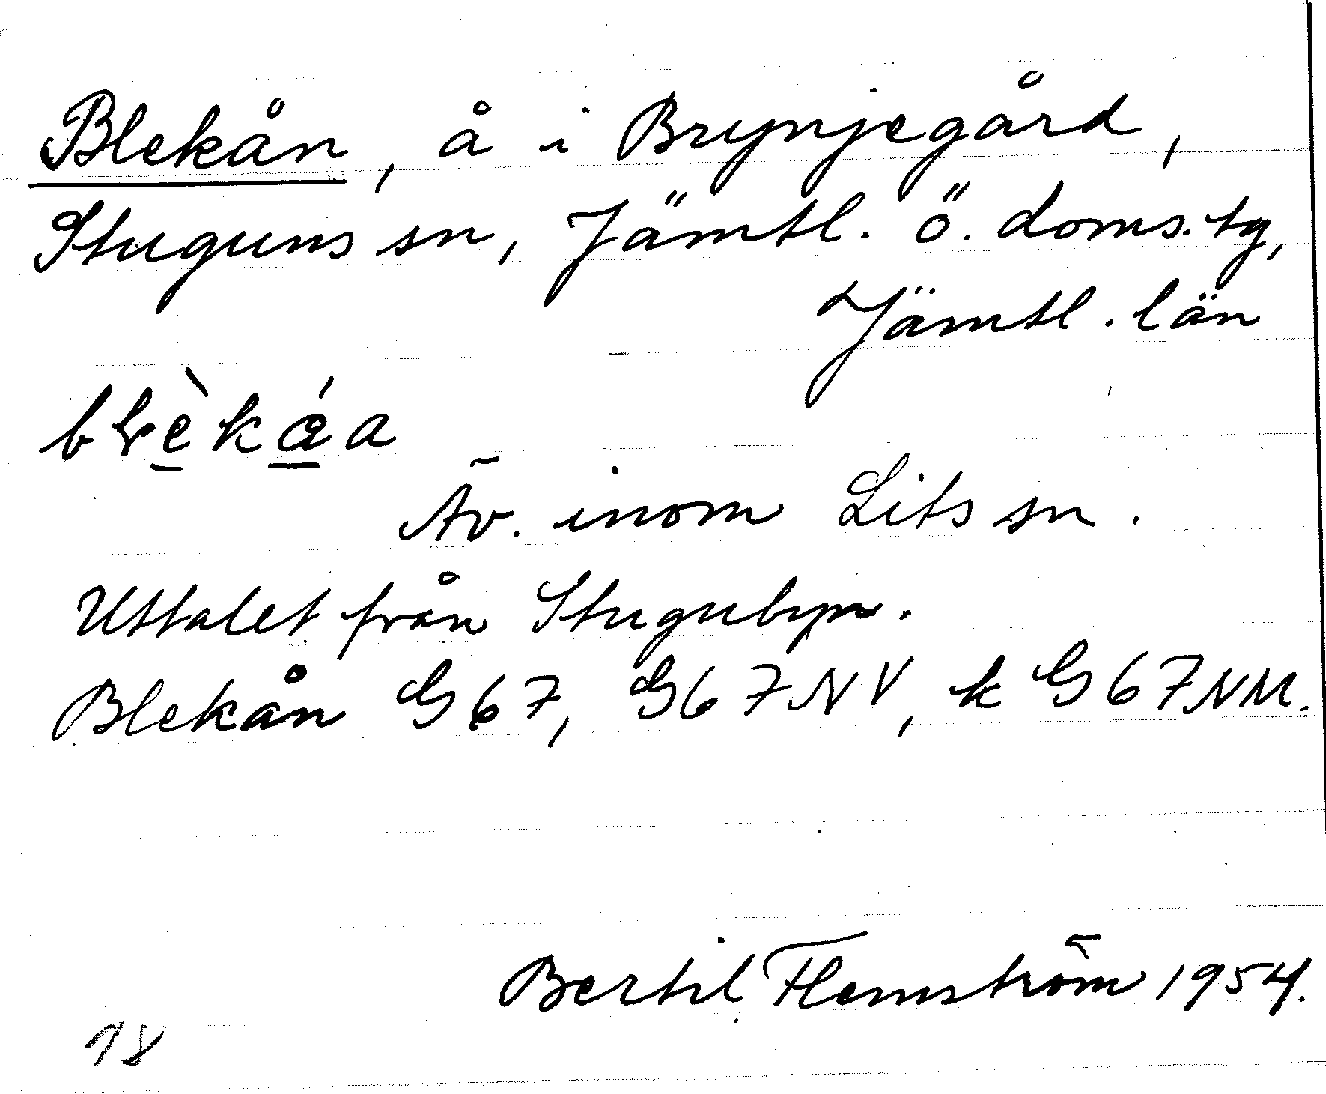 Blekån, å i Brynjegård,
Stuguns sn, Jämtl. ö. doms. tg,
Jämtl. län
blèkǽa
Äv. inom Lits sn.
Uttalet från Stugubyn.
Blekån G67, G67NV, k G67NM.
Bertil Flemström 1954.
18